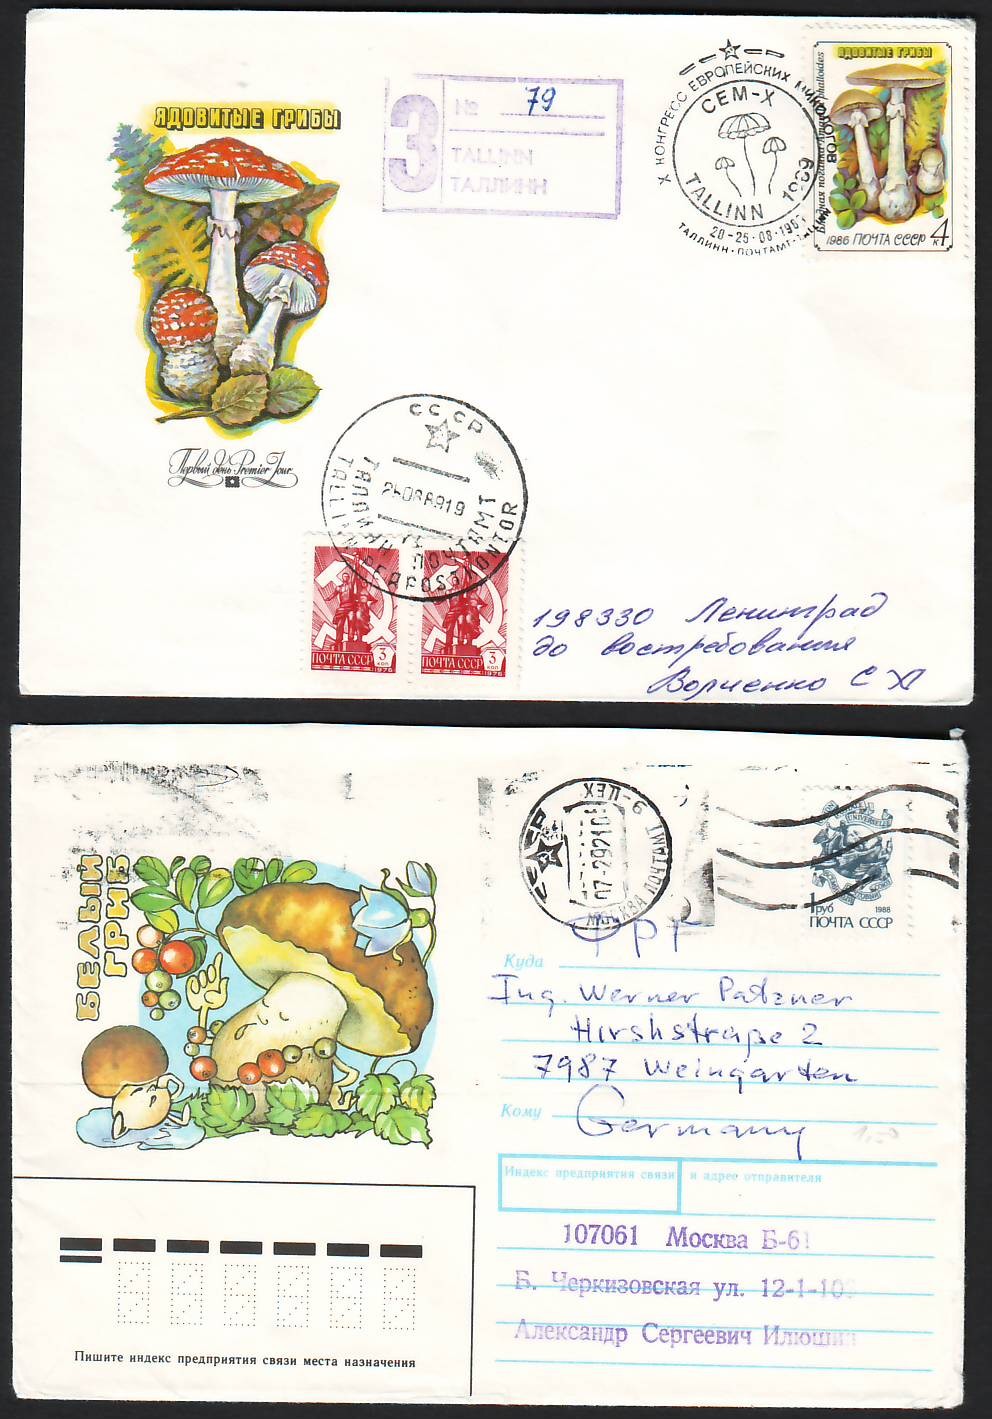 ЯДОВИТЫЕ ГРИБЫ
Первый день Premier Jour
З
№ 79
TALLINN
ТАЛЛИНН
X КОНГРЕСС ЕВРОПЕЙСКИХ МИКОЛОГОВ
CEM-X
TALLINN 1989
20-25·08·198
ТАЛЛИНН·ПОЧТАМТ·
ЯДОВИТЫЕ ГРИБЫ
Бледная поганка phalloides
1986 ПОЧТА СССР 4 к
СССР
ПОЧТАМТ
ПОЧТА СССР 3 коп
1976
ПОЧТА СССР 3 коп
1976
198330 Ленинград
до востребования
БЕЛЫЙ
ГРИБ
СССР
ПОЧТАМТ
ЦЕХ-6
UNIVERSELLE
1 руб
1988
ПОЧТА СССР
ФРГ
Куда
Ing. Werner Patzner
Hirshstraße 2
7987 Weingarten
Кому
Germany
1,50
Индекс предприятия связи и адрес отправителя
107061 Москва Б-61
Б. Черкизовская ул. 12-1-10
Александр Сергеевич Илюшин
Пишите индекс предприятия связи места назначения